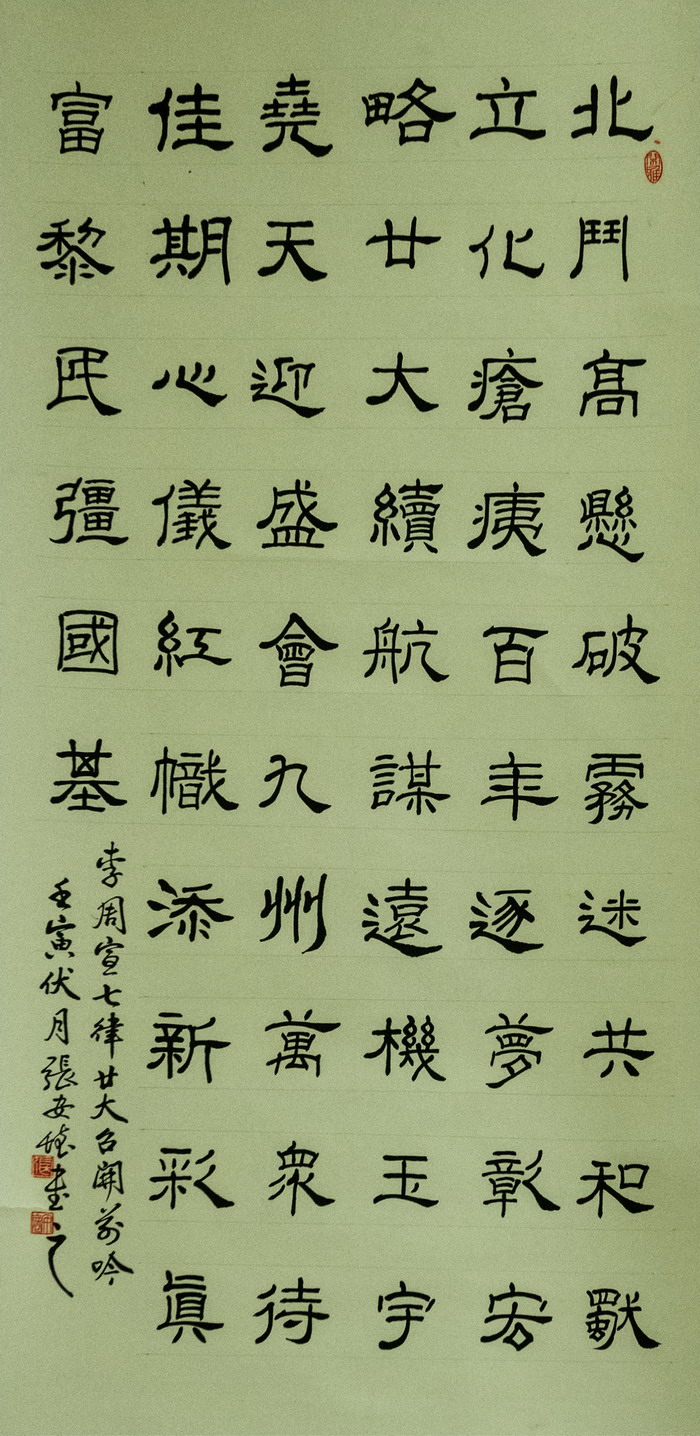 北鬥高懸破霧迷共和獨
立化瘡痍百年逐夢彰宏
略廿大續航謀遠機玉宇
堯天迎盛會九州萬眾待
佳期心儀紅幟添新彩眞
富黎民彊國基
李周宣七律廿大召開前吟
壬寅伏月張安書之